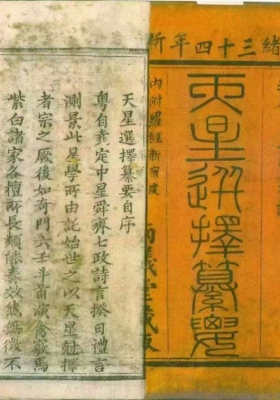 緒三十四年新
天星選擇纂要
内附羅經新宿度
堂藏板
天星選擇纂要自序
粵自堯定中星舜齊七政詩言揆日禮言
測景此星學所由託始世之以天星尅擇
者宗之厥後如奇門六壬斗首演禽祿馬
紫白諸家各擅所長類能奏效